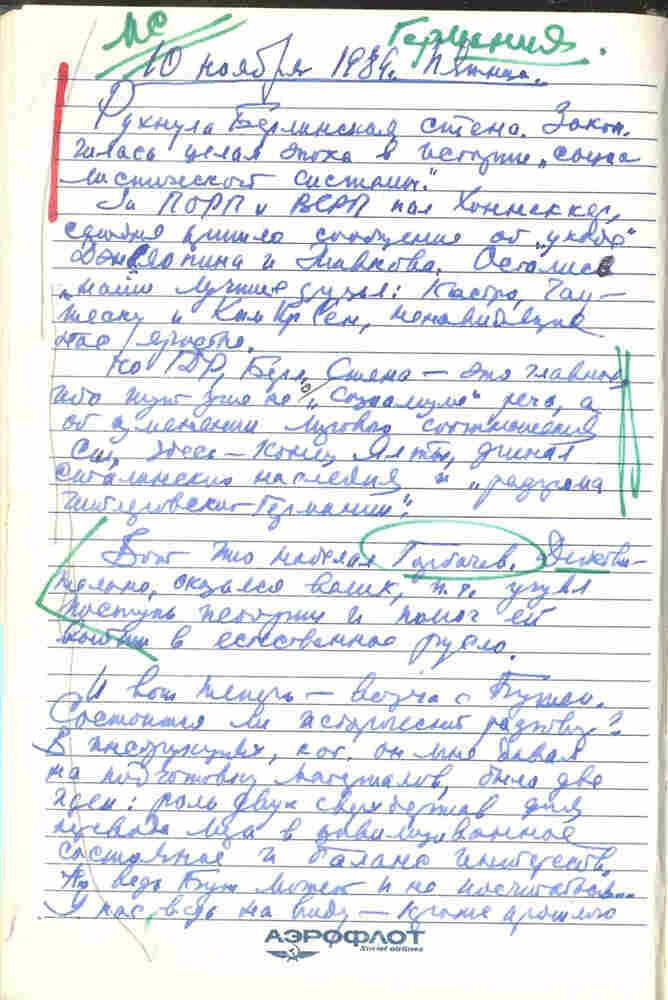 МС
Германия.
10 ноября 1989. Пятница.
Рухнула Берлинская стена. Закон-
чилась целая эпоха в истории „социа
листической системы".
За ПОРП и ВСРП пал Хоннеккер,
сегодня пришло сообщение об „уходе"
Дэн Сяопина и Живкова. Остались
„наши лучшие друзья: Кастро, Чау-
шеску и Ким Ир Сен, ненавидящие
нас яростно.
Но ГДР, Берл. Стена – это главное,
ибо тут уже не о „социализме" речь, а
об изменении мирового соотношения
Сил, здесь – Конец Ялты, финал
Сталинского наследия и „разгрома
гитлеровской Германии".
Вот что наделал Горбачев. Действи-
тельно, оказался велик, т.к. учуял
поступь истории и помог ей
выйти в естественное русло.
И вот теперь – встреча с Бушем.
Состоится ли исторический разговор?
В инструкциях, кот. он мне давал
на подготовку материалов, было две
идеи: роль двух сверхдержав для
перевода мира в цивилизованное
состояние и баланс интересов.
Но ведь Буш может и не посчитаться...
У нас ведь на виду – кроме прошлого
АЭРОФЛОТ
Soviet airlines